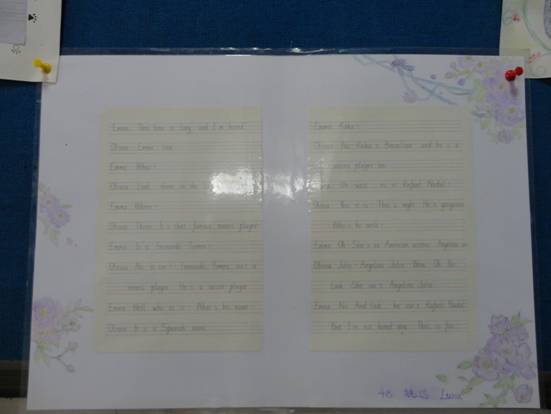 Emma: This line is long and I'm bored.
Olivia: Emma, look.
Emma: What?
Olivia: Look, there in the
Emma: Where?
Olivia: There. It's that famous tennis player.
Emma: It's Fernando Torres.
Olivia: No, it isn't. Fernando Torres isn't a
tennis player. He's a soccer player.
Emma: Well, who is it? What's his name?
Olivia: It is a Spanish name.
Emma: Kaka?
Olivia: No. Kaka's Brazilian and he is a
soccer player too.
Oh wait is it Rafael Nadal?
Olivia: Yes it is. That's right. He's gorgeous.
Who's he with?
Emma: Oh. She's an American actress. Angelina
Olivia: Jolie - Angelina Jolie. Oh No.
Look. She isn't Angelina Jolie.
Emma: No. And look, he isn't Rafael Nadal.
But I'm not bored now. This is fun.
48 Miss Luna